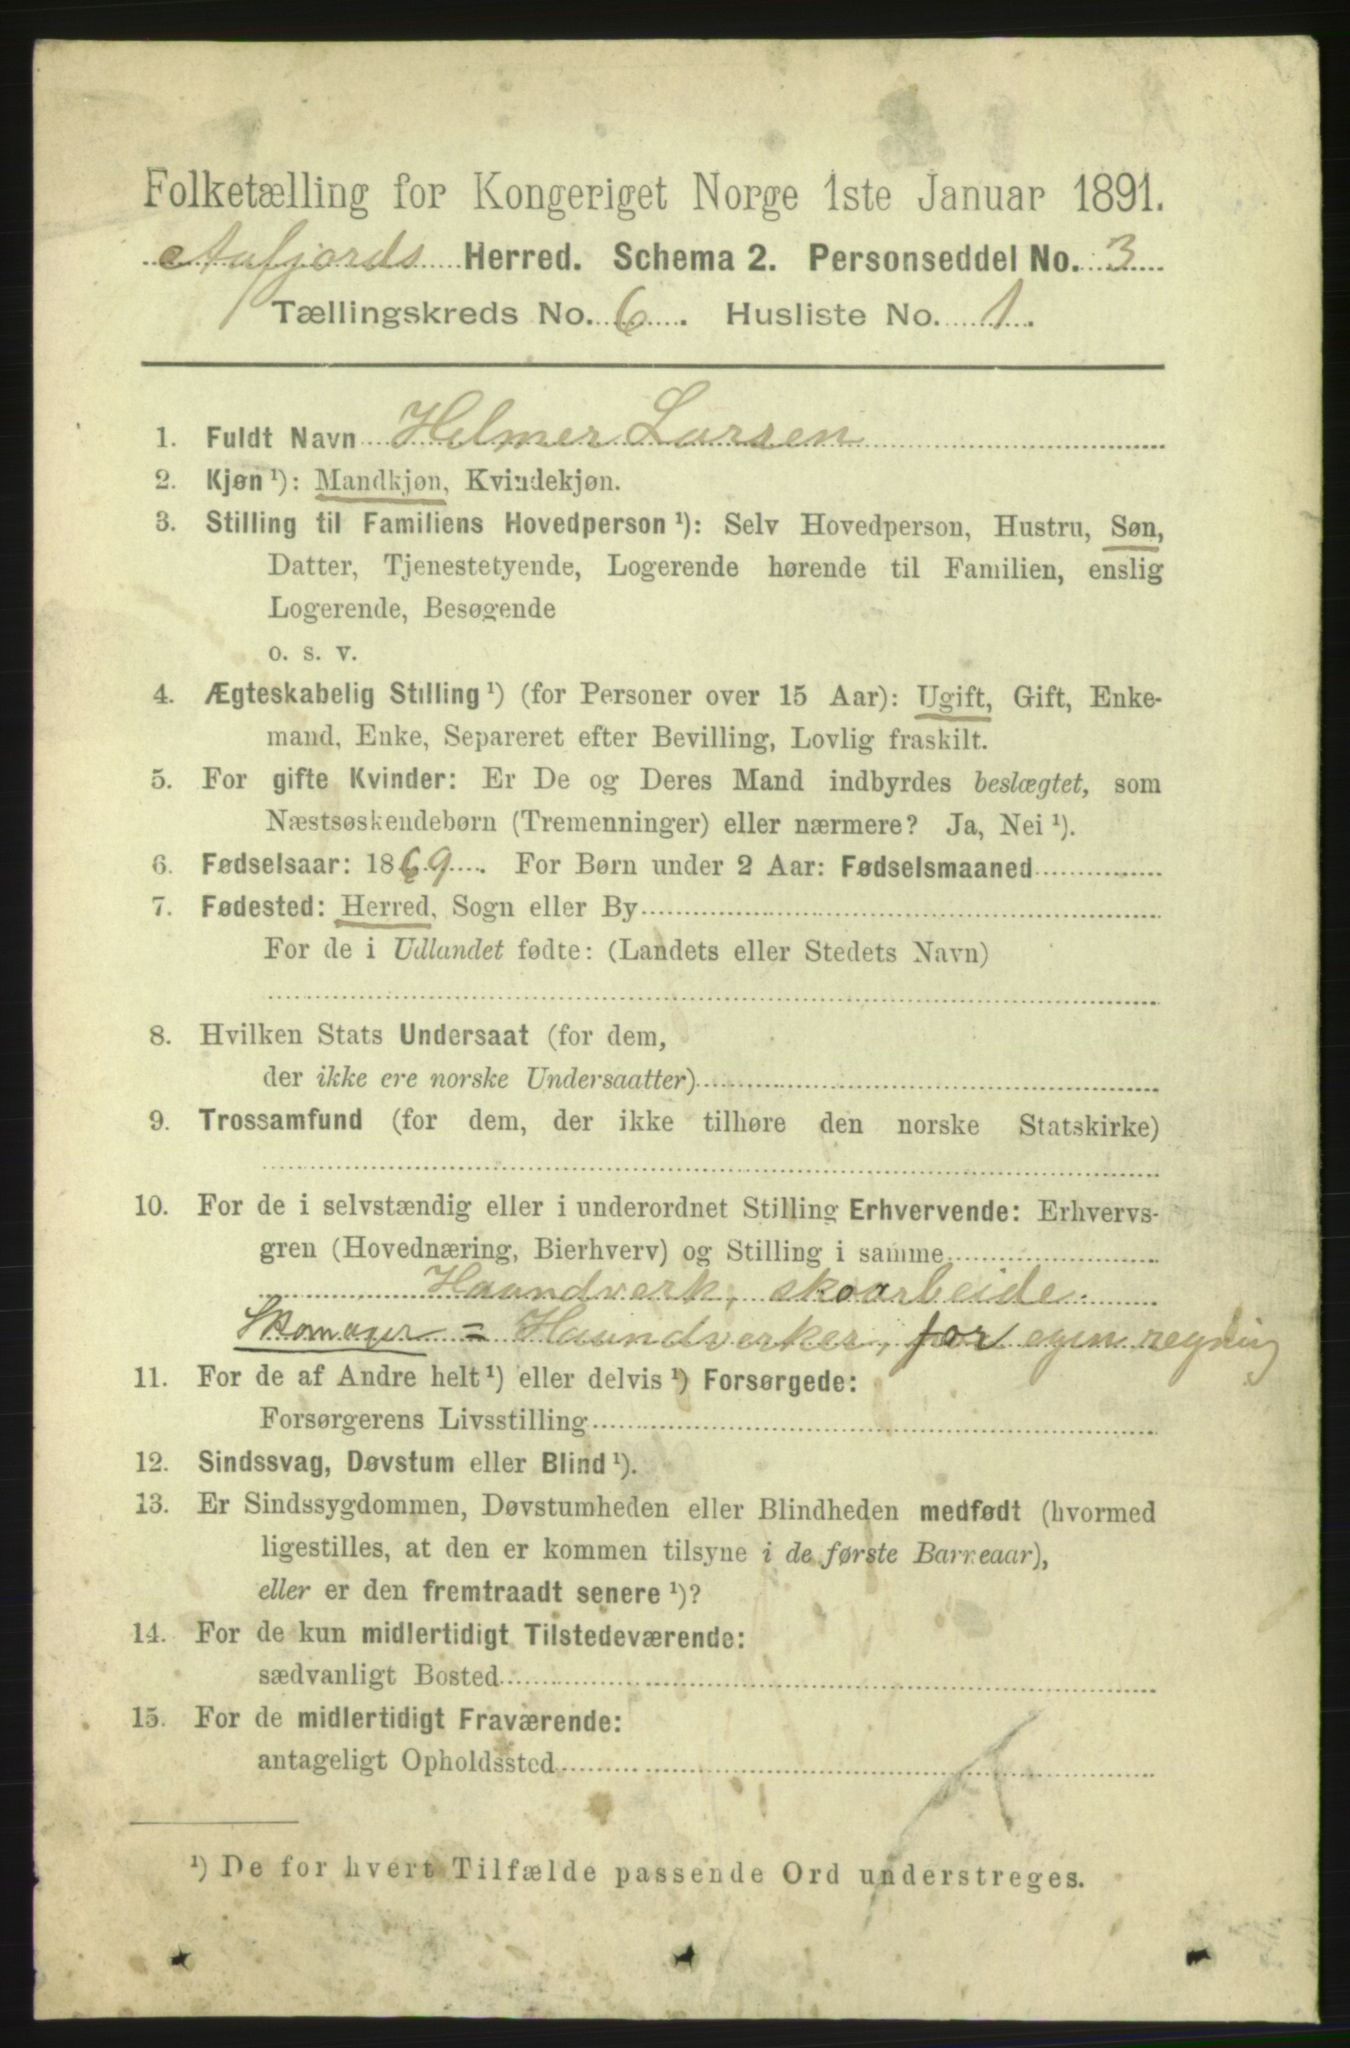 Folketælling for Kongeriget Norge 1ste Januar 1891.
Aafjords Herred. Schema 2. Personseddel No. 3
Tællingskreds No. 6. Husliste No. 1.
1. Fuldt Navn Helmer Larsen
2. Kjøn ¹): Mandkjøn, Kvindekjøn.
3. Stilling til Familiens Hovedperson ¹): Selv Hovedperson, Hustru, Søn,
Datter, Tjenestetyende, Logerende hørende til Familien, enslig
Logerende, Besøgende
o. s. v.
4. Ægteskabelig Stilling ¹) (for Personer over 15 Aar): Ugift, Gift, Enke-
mand, Enke, Separeret efter Bevilling, Lovlig fraskilt.
5. For gifte Kvinder: Er De og Deres Mand indbyrdes beslægtet, som
Næstsøskendebørn (Tremenninger) eller nærmere? Ja, Nei ¹).
6. Fødselsaar: 1869. For Børn under 2 Aar: Fødselsmaaned
7. Fødested: Herred, Sogn eller By
For de i Udlandet fødte: (Landets eller Stedets Navn)
8. Hvilken Stats Undersaat (for dem,
der ikke ere norske Undersaatter)
9. Trossamfund (for dem, der ikke tilhøre den norske Statskirke)
10. For de i selvstændig eller i underordnet Stilling Erhvervende: Erhvervs-
gren (Hovednæring, Bierhverv) og Stilling i samme
Haandverk, skoarbeide.
Skomager = Haandverker, for egen regning
11. For de af Andre helt ¹) eller delvis ¹) Forsørgede:
Forsørgerens Livsstilling
12. Sindssvag, Døvstum eller Blind ¹).
13. Er Sindssygdommen, Døvstumheden eller Blindheden medfødt (hvormed
ligestilles, at den er kommen tilsyne i de første Barneaar),
eller er den fremtraadt senere ¹)?
14. For de kun midlertidigt Tilstedeværende:
sædvanligt Bosted
15. For de midlertidigt Fraværende:
antageligt Opholdssted
¹) De for hvert Tilfælde passende Ord understreges.